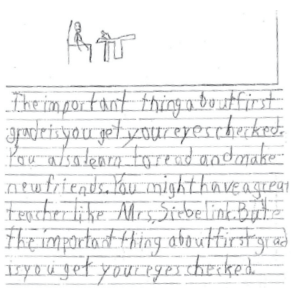 The important thing about first
grade is you get your eyes checked.
You also learn to read and make
new friends. You might have a great
teacher like Mrs. Siebelink. But
the important thing about first grad
is you get your eyes checked.